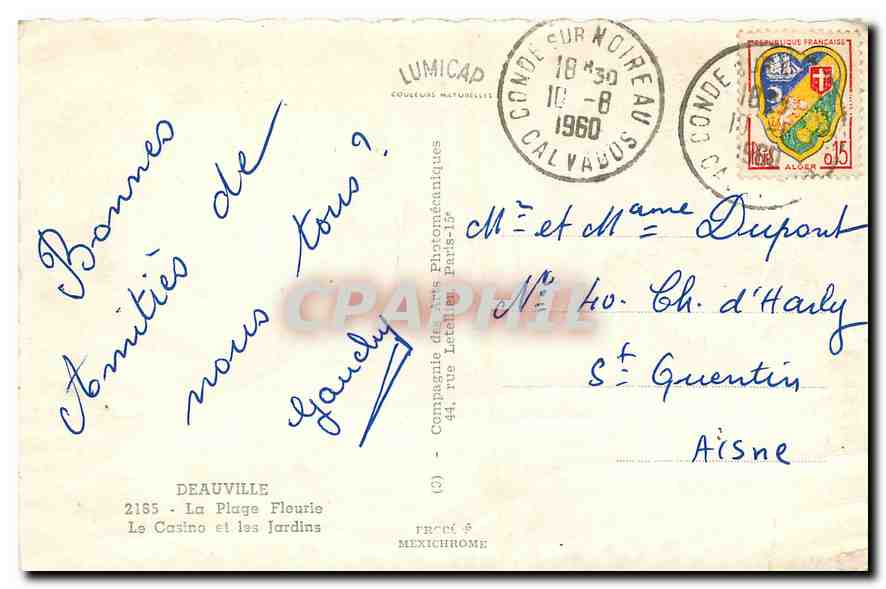 LUMICAP
COULEURS NATURELLES
CONDE SUR NOIREAU
18 H30
10 -8
1960
CALVADOS
CONDE
18
1960
REPUBLIQUE FRANÇAISE
ALGER
0,15
Bonnes
Amitiés de
nous tous?
Gauchy
Mr et Mame Dupont
No 40. Ch. d'Harly
St Quentin
Aisne
(9) - Compagnie des Arts Photomécaniques
44, rue Letellier, Paris-15e
CPAPHIL
DEAUVILLE
2185 - La Plage Fleurie
Le Casino et les Jardins
PROCÉDÉ
MEXICHROME